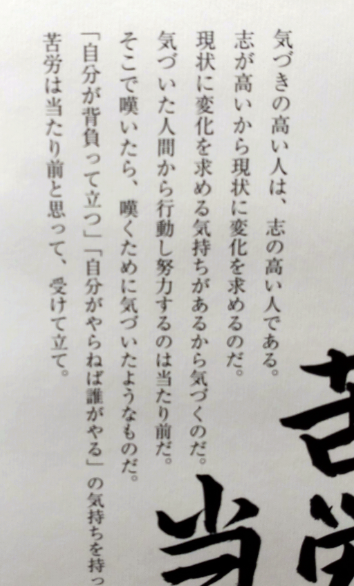 気づきの高い人は、志の高い人である。
志が高いから現状に変化を求めるのだ。
現状に変化を求める気持ちがあるから気づくのだ。
気づいた人間から行動し努力するのは当たり前だ。
そこで嘆いたら、嘆くために気づいたようなものだ。
「自分が背負って立つ」「自分がやらねば誰がやる」の気持ちを持っ
苦労は当たり前と思って、受けて立て。
苦労
当